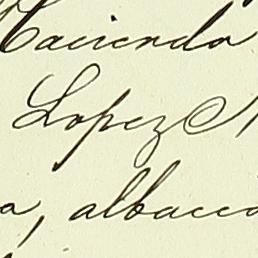 Hacienda
Lopez N
a, albacea